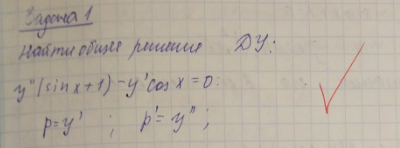 Задача 1
Найти общее решение ДУ:
y"(sinx+1)-y'cosx=0.
p=y' ; p'=y" ;